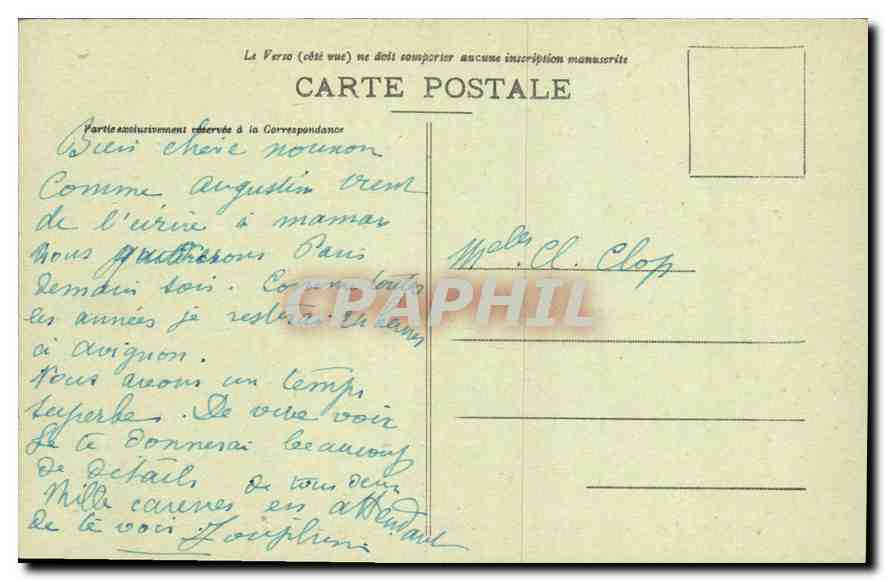 Le Verso (côté vue) ne doit comporter aucune inscription manuscrite
CARTE POSTALE
Partie exclusivement réservée à la Correspondance
Bien chère nounon
Comme Augustin vient
de l'écrire à maman
nous quitterons Paris
demain soir. Comme toutes
les années je resterai heures
à avignon.
Nous avons un temps
superbe. De vive voix
Je te donnerai beaucoup
de détails de tous deux
Mille caresses en attendant
de te voir.
Melle. Cl. Clop
CPAPHIL